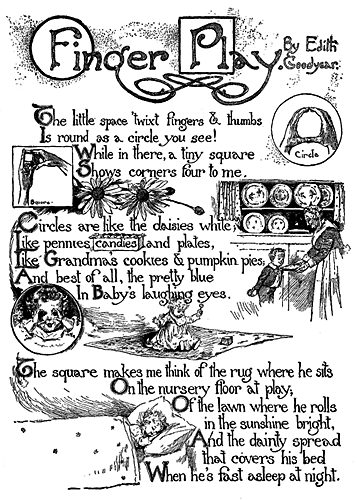 Finger Play.
By Edith
Goodyear.
The little space 'twixt fingers & thumbs
Is round as a circle you see!
While in there, a tiny square
Shows corners four to me.
Circle
Square.
Circles are like the daisies white,
Like pennies, candies and plates,
Like Grandma's cookies & pumpkin pies;
And best of all, the pretty blue
In Baby's laughing eyes.
The square makes me think of the rug where he sits
On the nursery floor at play;
Of the lawn where he rolls
in the sunshine bright,
And the dainty spread
that covers his bed
When he's fast asleep at night.